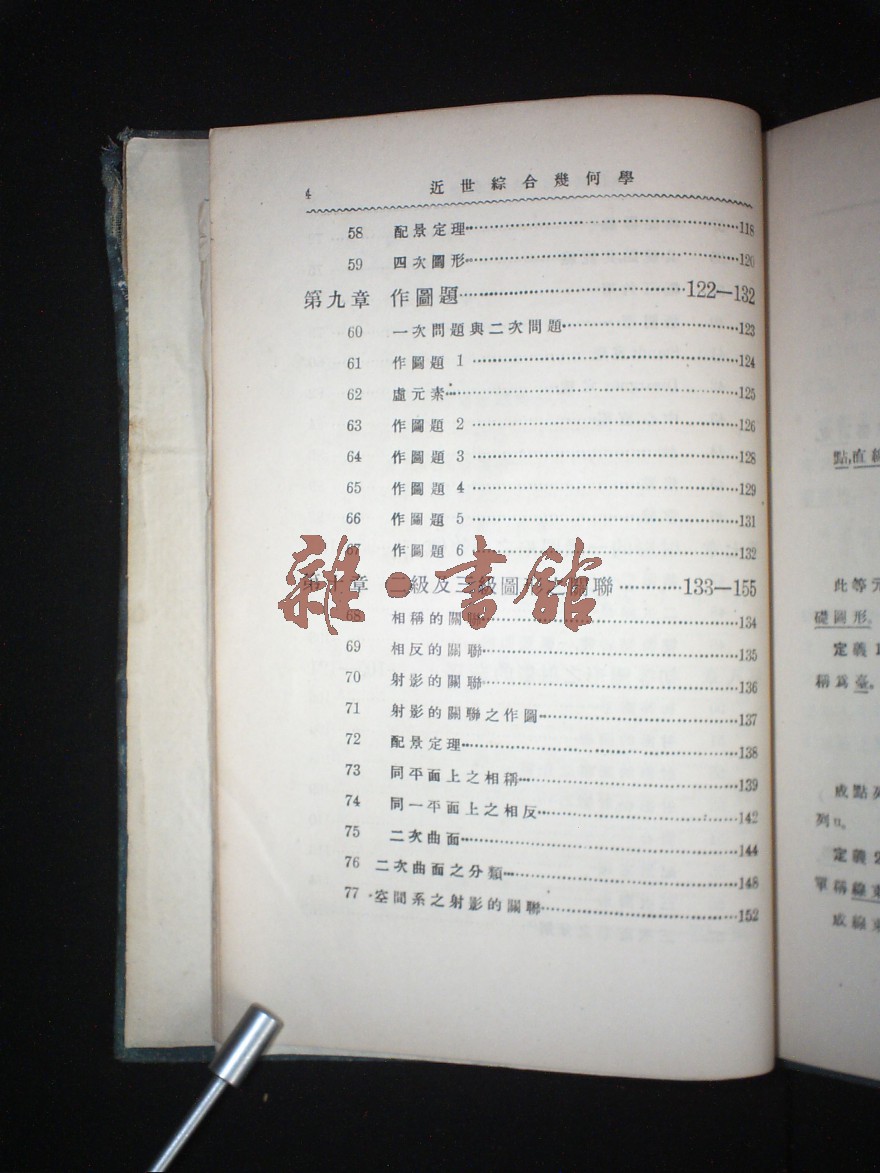 4 近世綜合幾何學
58 配景定理 118
59 四次圖形 120
第九章 作圖題 122—132
60 一次問題與二次問題 123
61 作圖題 1 124
62 虛元素 125
63 作圖題 2 126
64 作圖題 3 128
65 作圖題 4 129
66 作圖題 5 131
67 作圖題 6 132
第十章 二級及三級圖形之關聯 133—155
68 相稱的關聯 134
69 相反的關聯 135
70 射影的關聯 136
71 射影的關聯之作圖 137
72 配景定理 138
73 同平面上之相稱 139
74 同一平面上之相反 142
75 二次曲面 144
76 二次曲面之分類 148
77 空間系之射影的關聯 152
雜·書館
點,直線
此等元
礎圖形。
定義1
稱爲臺。
成點列
列u。
定義2
單稱線束
成線束